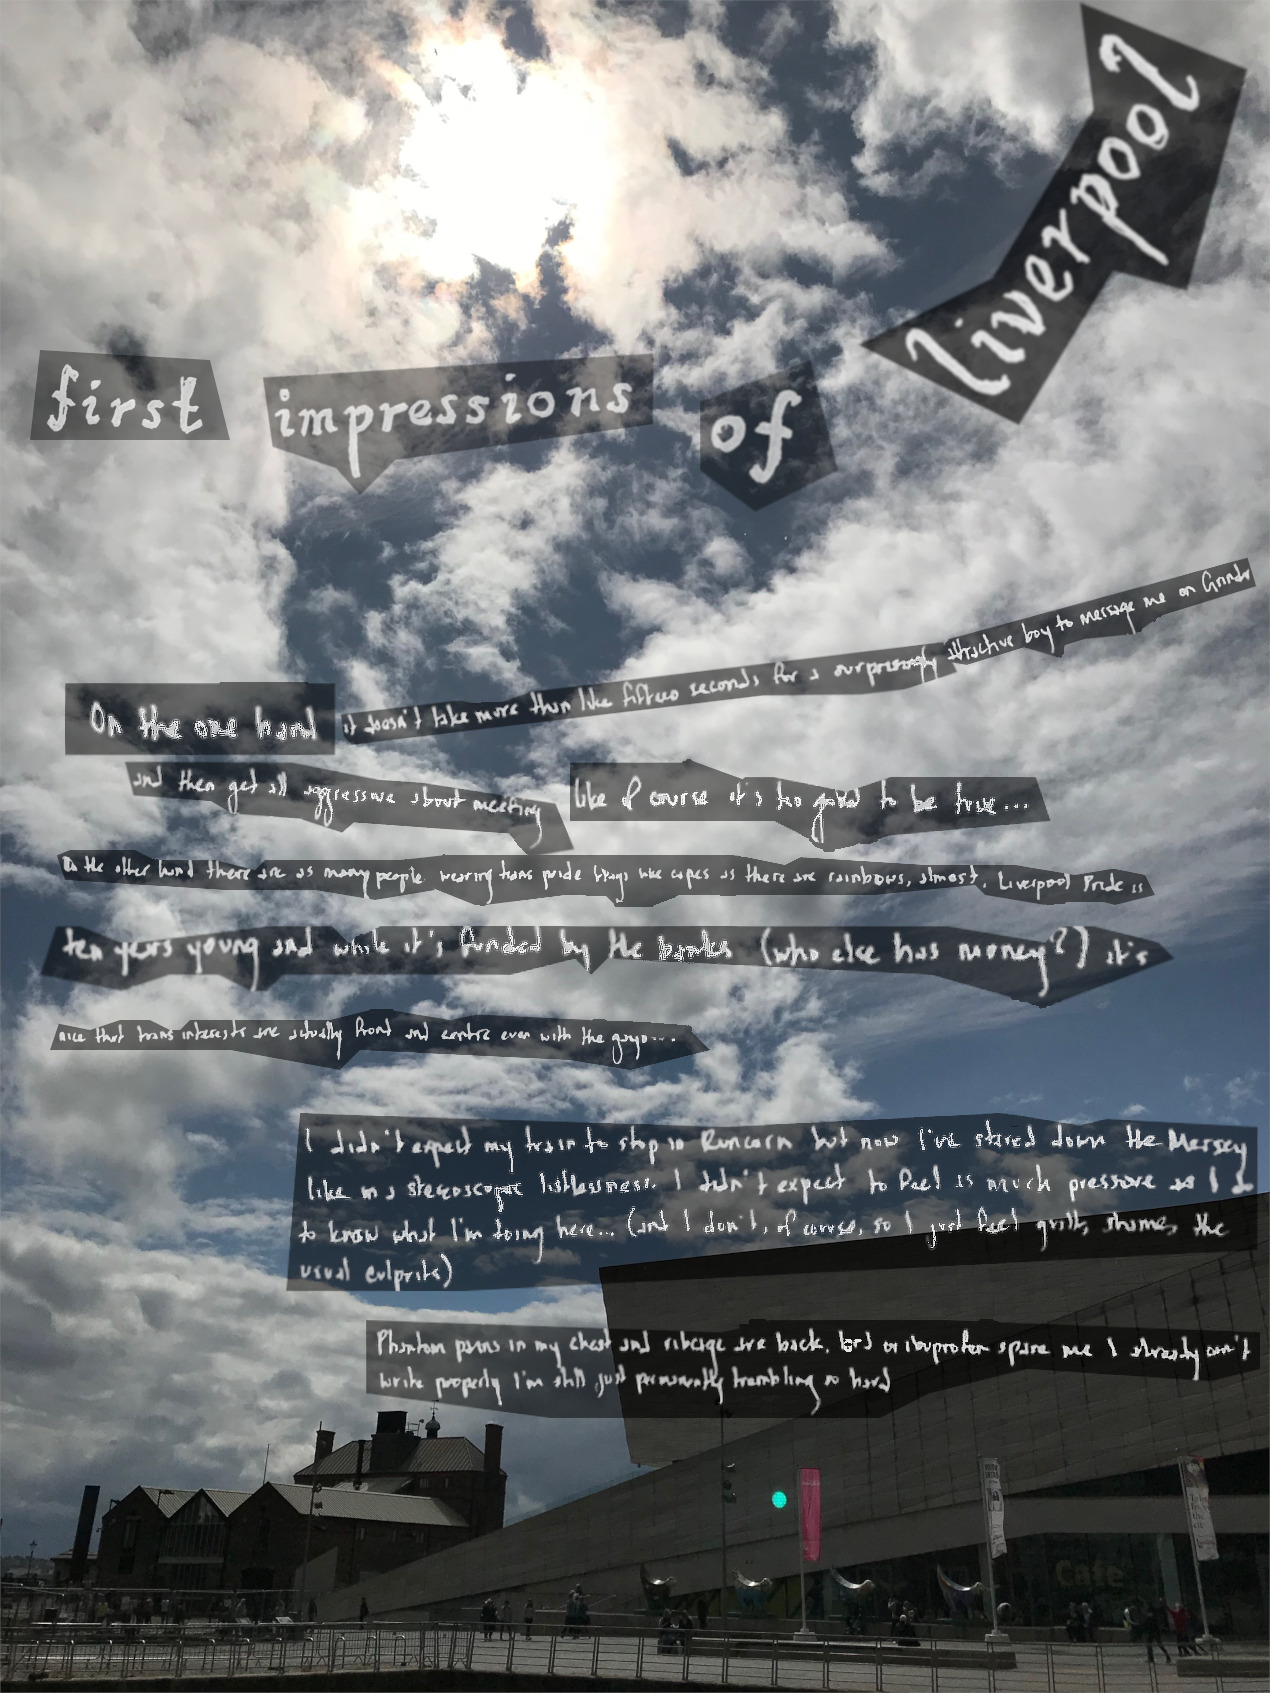 first impressions of liverpool
On the one hand it doesn't take more than like fifteen seconds for a surprisingly attractive boy to message me on Grindr
and then get all aggressive about meeting like of course it's too good to be true...
On the other hand there are as many people wearing trans pride flags like capes as there are rainbows, almost. Liverpool Pride is
ten years young and while it's funded by the banks (who else has money?) it's
nice that trans interests are actually front and centre even with the guys...
I didn't expect my train to stop in Runcorn but now I've stared down the Mersey
like in a stereoscope listlessness. I didn't expect to feel as much pressure as I do
to know what I'm doing here... (and I don't, of course, so I just feel guilt, shame, the
usual culprits)
Phantom pains in my chest and ribcage are back, lord or ibuprofen spare me I already can't
write properly I'm still just permanently trembling so hard
Cafe